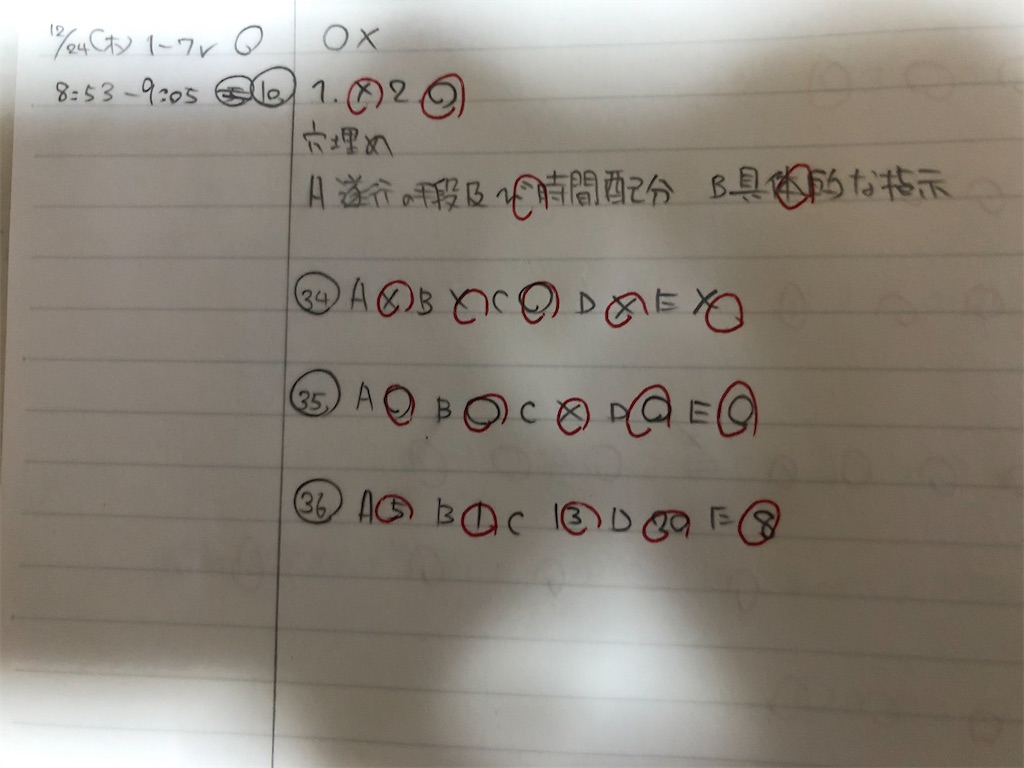 12/24(木) 1-7v Q
8:53-9:05 10
OX
1. X 2 O
穴埋め
A 遂行の手段及び時間配分 B具体的な指示
34 A X B X C O D X E X
35 A O B O C X D O E O
36 A 5 B 1 C 13 D 39 E 8